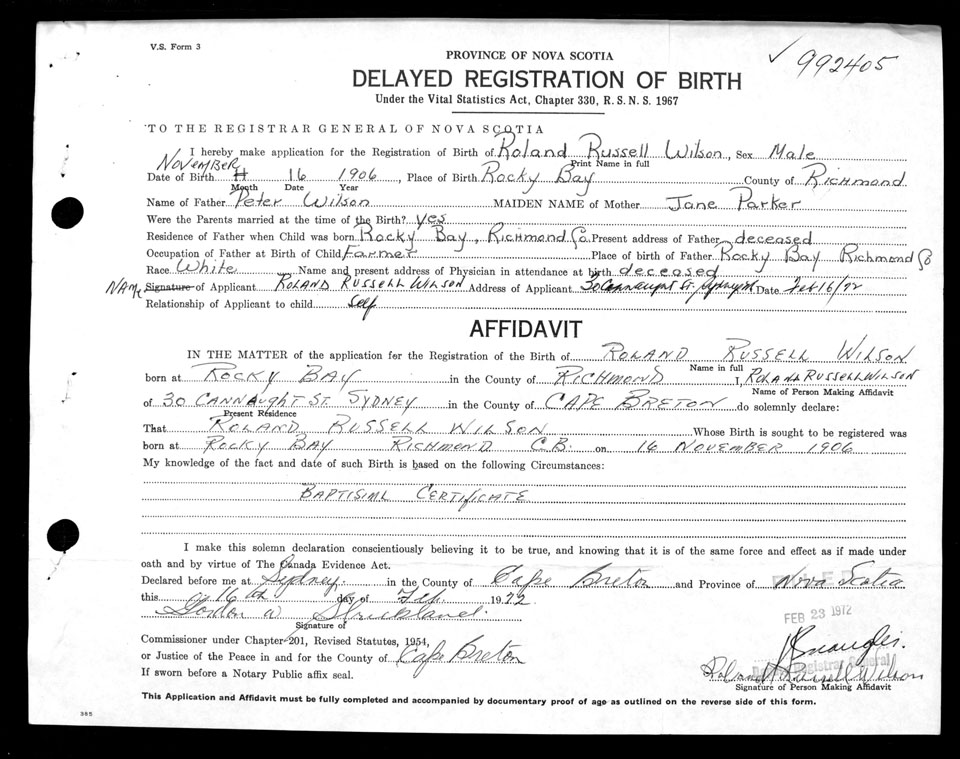 V.S. Form 3
✓ 992405
PROVINCE OF NOVA SCOTIA
DELAYED REGISTRATION OF BIRTH
Under the Vital Statistics Act, Chapter 330, R. S. N. S. 1967
TO THE REGISTRAR GENERAL OF NOVA SCOTIA
I hereby make application for the Registration of Birth of Roland Russell Wilson, Sex Male
Print Name in full
NOVEMBER
Date of Birth 16 1906, Place of Birth Rocky Bay County of Richmond
Month Date Year
Name of Father Peter Wilson MAIDEN NAME of Mother Jane Parker
Were the Parents married at the time of the Birth? yes
Residence of Father when Child was born Rocky Bay, Richmond Co Present address of Father deceased
Occupation of Father at Birth of Child Farmer Place of birth of Father Rocky Bay Richmond Co
Race White Name and present address of Physician in attendance at birth deceased
NAME Signature of Applicant ROLAND RUSSELL WILSON Address of Applicant 30 Cannaught St. Sydney Date Feb 16/72
Relationship of Applicant to child Self
AFFIDAVIT
IN THE MATTER of the application for the Registration of the Birth of ROLAND RUSSELL WILSON
Name in full
born at ROCKY BAY in the County of RICHMOND I, ROLAND RUSSELL WILSON
Name of Person Making Affidavit
of 30 CANNAUGHT ST. SYDNEY in the County of CAPE BRETON do solemnly declare:
Present Residence
That ROLAND RUSSELL WILSON Whose Birth is sought to be registered was
born at ROCKY BAY RICHMOND C.B. on 16 NOVEMBER 1906
My knowledge of the fact and date of such Birth is based on the following Circumstances:
BAPTISIML CERTIFICATE
I make this solemn declaration conscientiously believing it to be true, and knowing that it is of the same force and effect as if made under
oath and by virtue of The Canada Evidence Act.
Declared before me at Sydney in the County of Cape Breton and Province of Nova Scotia
this 16th day of Feb 1972
FEB 23 1972
Gordon W Strickland
Signature of
Commissioner under Chapter 201, Revised Statutes, 1954,
or Justice of the Peace in and for the County of Cape Breton
If sworn before a Notary Public affix seal.
Deputy Registrar General
Roland Russell Wilson
Signature of Person Making Affidavit
This Application and Affidavit must be fully completed and accompanied by documentary proof of age as outlined on the reverse side of this form.
385